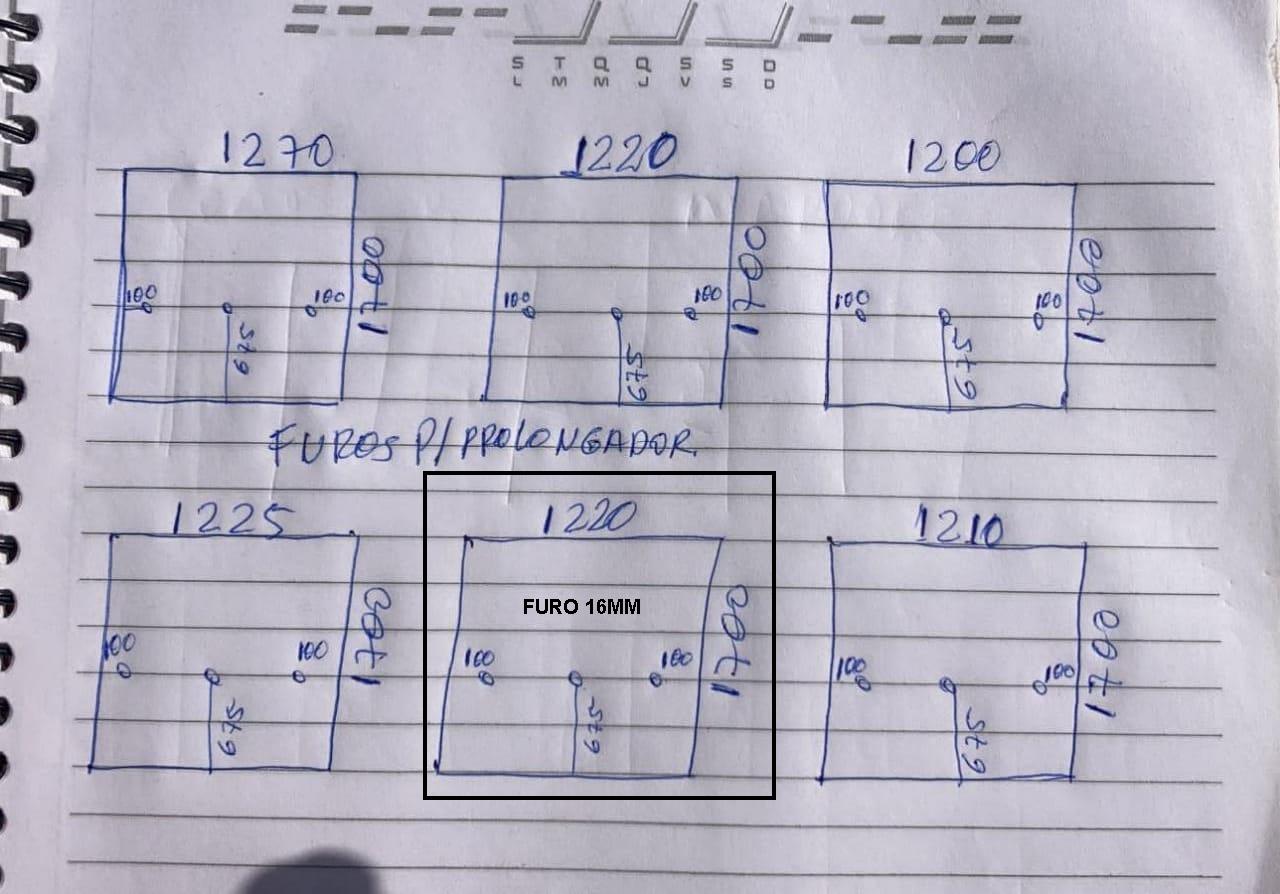 S T Q Q S S D
L M M J V S D
1270
1220
1200
1700
1700
1700
100
100
675
100
100
675
100
100
675
FUROS P/ PROLONGADOR.
1225
1220
1210
FURO 16MM
1700
1700
1700
100
100
675
100
100
675
100
100
675